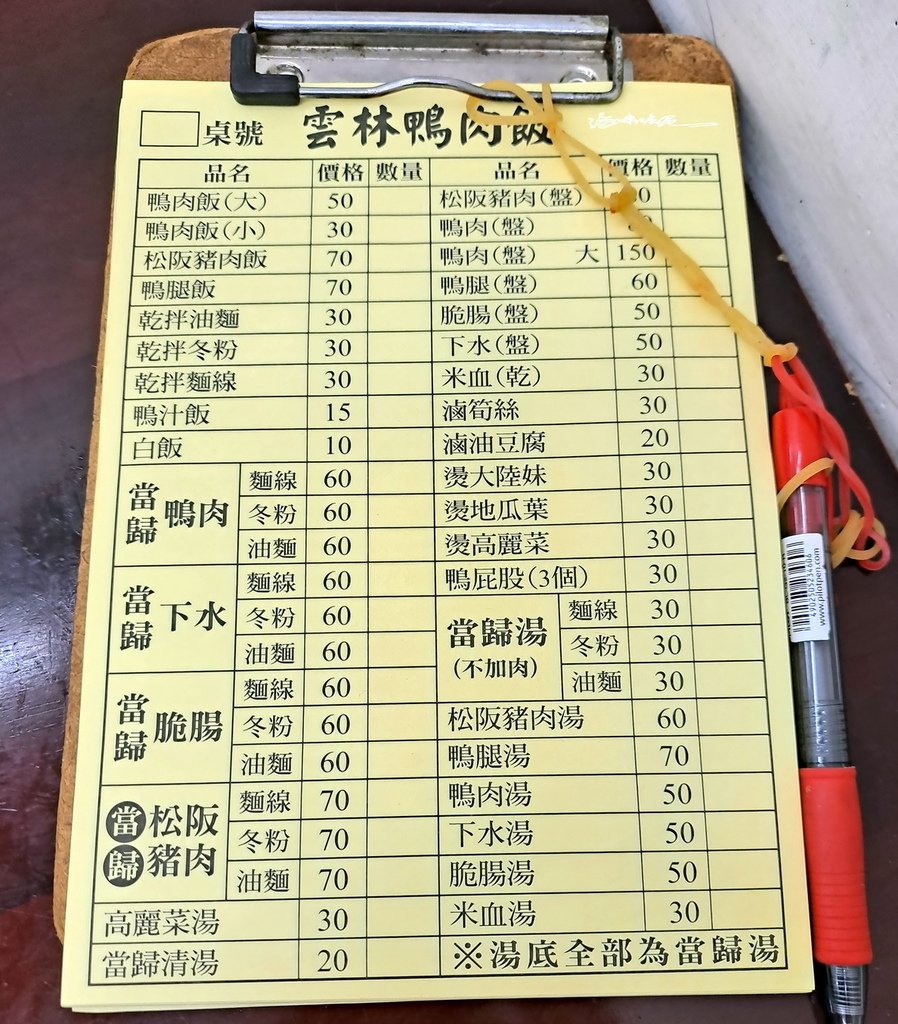 桌號 雲林鴨肉飯
品名 價格 數量 品名 價格 數量
鴨肉飯(大) 50 松阪豬肉(盤)
鴨肉飯(小) 30 鴨肉(盤)
松阪豬肉飯 70 鴨肉(盤) 大 150
鴨腿飯 70 鴨腿(盤) 60
乾拌油麵 30 脆腸(盤) 50
乾拌冬粉 30 下水(盤) 50
乾拌麵線 30 米血(乾) 30
鴨汁飯 15 滷筍絲 30
白飯 10 滷油豆腐 20
當歸 鴨肉 麵線 60 燙大陸妹 30
冬粉 60 燙地瓜葉 30
油麵 60 燙高麗菜 30
當歸 下水 麵線 60 鴨屁股(3個) 30
冬粉 60 當歸湯 (不加肉) 麵線 30
油麵 60 冬粉 30
當歸 脆腸 麵線 60 油麵 30
冬粉 60 松阪豬肉湯 60
油麵 60 鴨腿湯 70
當歸 松阪豬肉 麵線 70 鴨肉湯 50
冬粉 70 下水湯 50
油麵 70 脆腸湯 50
高麗菜湯 30 米血湯 30
當歸清湯 20 ※湯底全部為當歸湯
4902505234606
www.pilotpen.com